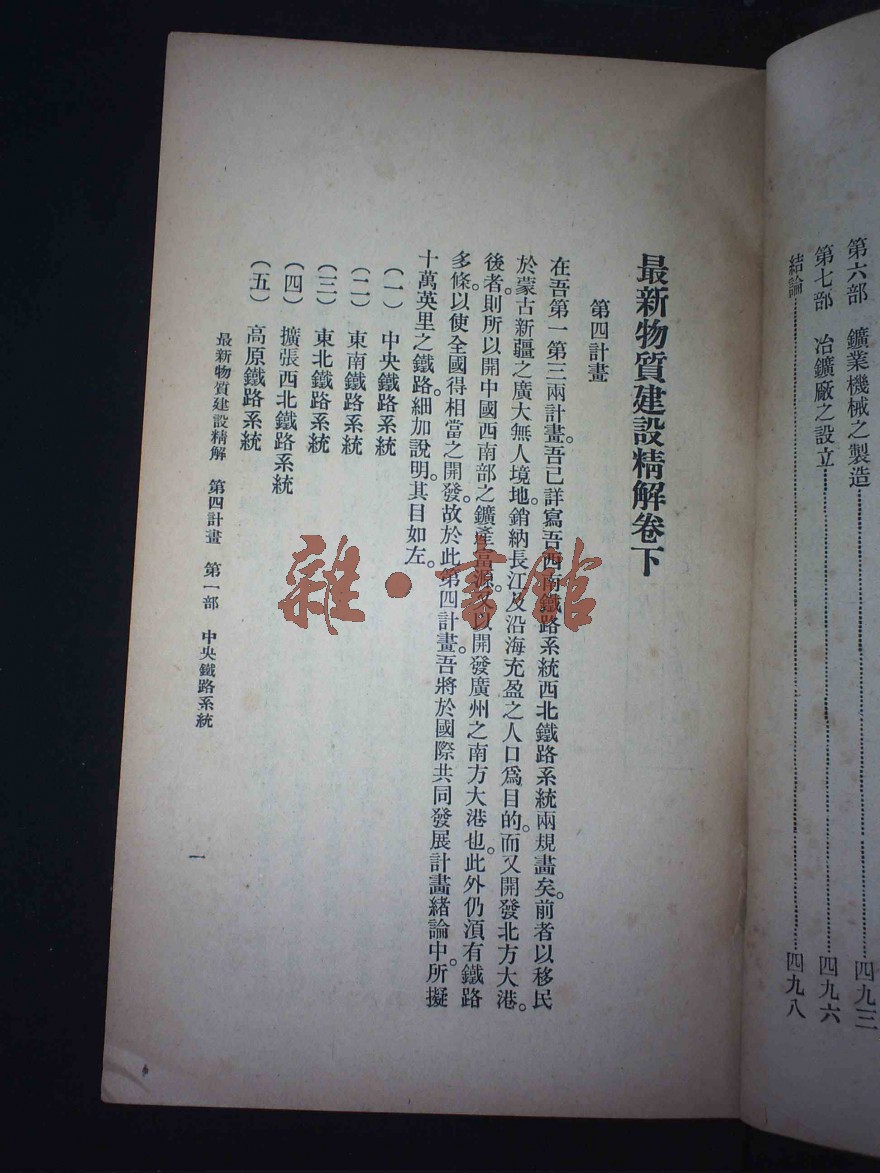 第六部　鑛業機械之製造………四九三
第七部　冶鑛廠之設立………四九六
結論………四九八
最新物質建設精解卷下
第四計畫
在吾第一第三兩計畫。吾已詳寫吾西南鐵路系統西北鐵路系統兩規畫矣。前者以移民
於蒙古新疆之廣大無人境地。銷納長江及沿海充盈之人口爲目的。而又開發北方大港。
後者則所以開中國西南部之鑛產富源。又以開發廣州之南方大港也。此外仍須有鐵路
多條以使全國得相當之開發。故於此第四計畫。吾將於國際共同發展計畫緒論中所擬
十萬英里之鐵路。細加說明。其目如左。
（一）　中央鐵路系統
（二）　東南鐵路系統
（三）　東北鐵路系統
（四）　擴張西北鐵路系統
（五）　高原鐵路系統
最新物質建設精解　第四計畫　第一部　中央鐵路系統
一
雜·書館